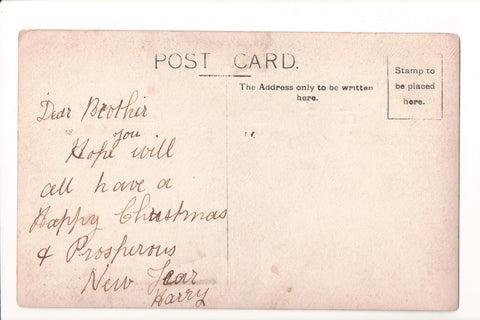 POST CARD.
The Address only to be written
here.
Stamp to
be placed
here.
Dear Brother
you
Hope will
all have a
Happy Christmas
& Prosperous
New Year
Harry